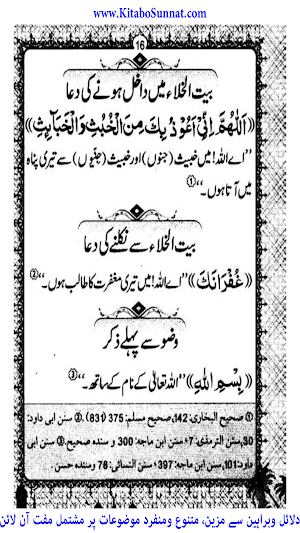 www.KitaboSunnat.com
16
بیت الخلاء میں داخل ہونے کی دعا
﴿اَللّٰهُمَّ اِنِّيْ اَعُوْذُ بِكَ مِنَ الْخُبُثِ وَالْخَبَآئِثِ﴾
”اے اللہ! میں خبیث (جنوں) اور خبیث (جنیوں) سے تیری پناہ
میں آتا ہوں۔“ ①
بیت الخلاء سے نکلنے کی دعا
﴿غُفْرَانَكَ﴾ ”اے اللہ! میں تیری مغفرت کا طالب ہوں۔“ ②
وضو سے پہلے ذکر
﴿بِسْمِ اللّٰهِ﴾ ”اللہ تعالیٰ کے نام کے ساتھ۔“ ③
① صحیح البخاری: 142، صحیح مسلم: 375 (831). ② سنن ابی داود:
30، سنن الترمذی: 7، سنن ابن ماجہ: 300 و سندہ صحیح. ③ سنن ابی
داود: 101، سنن ابن ماجہ: 397، سنن النسائی: 78 و سندہ حسن.
دلائل وبراہین سے مزین، متنوع ومنفرد موضوعات پر مشتمل مفت آن لائن